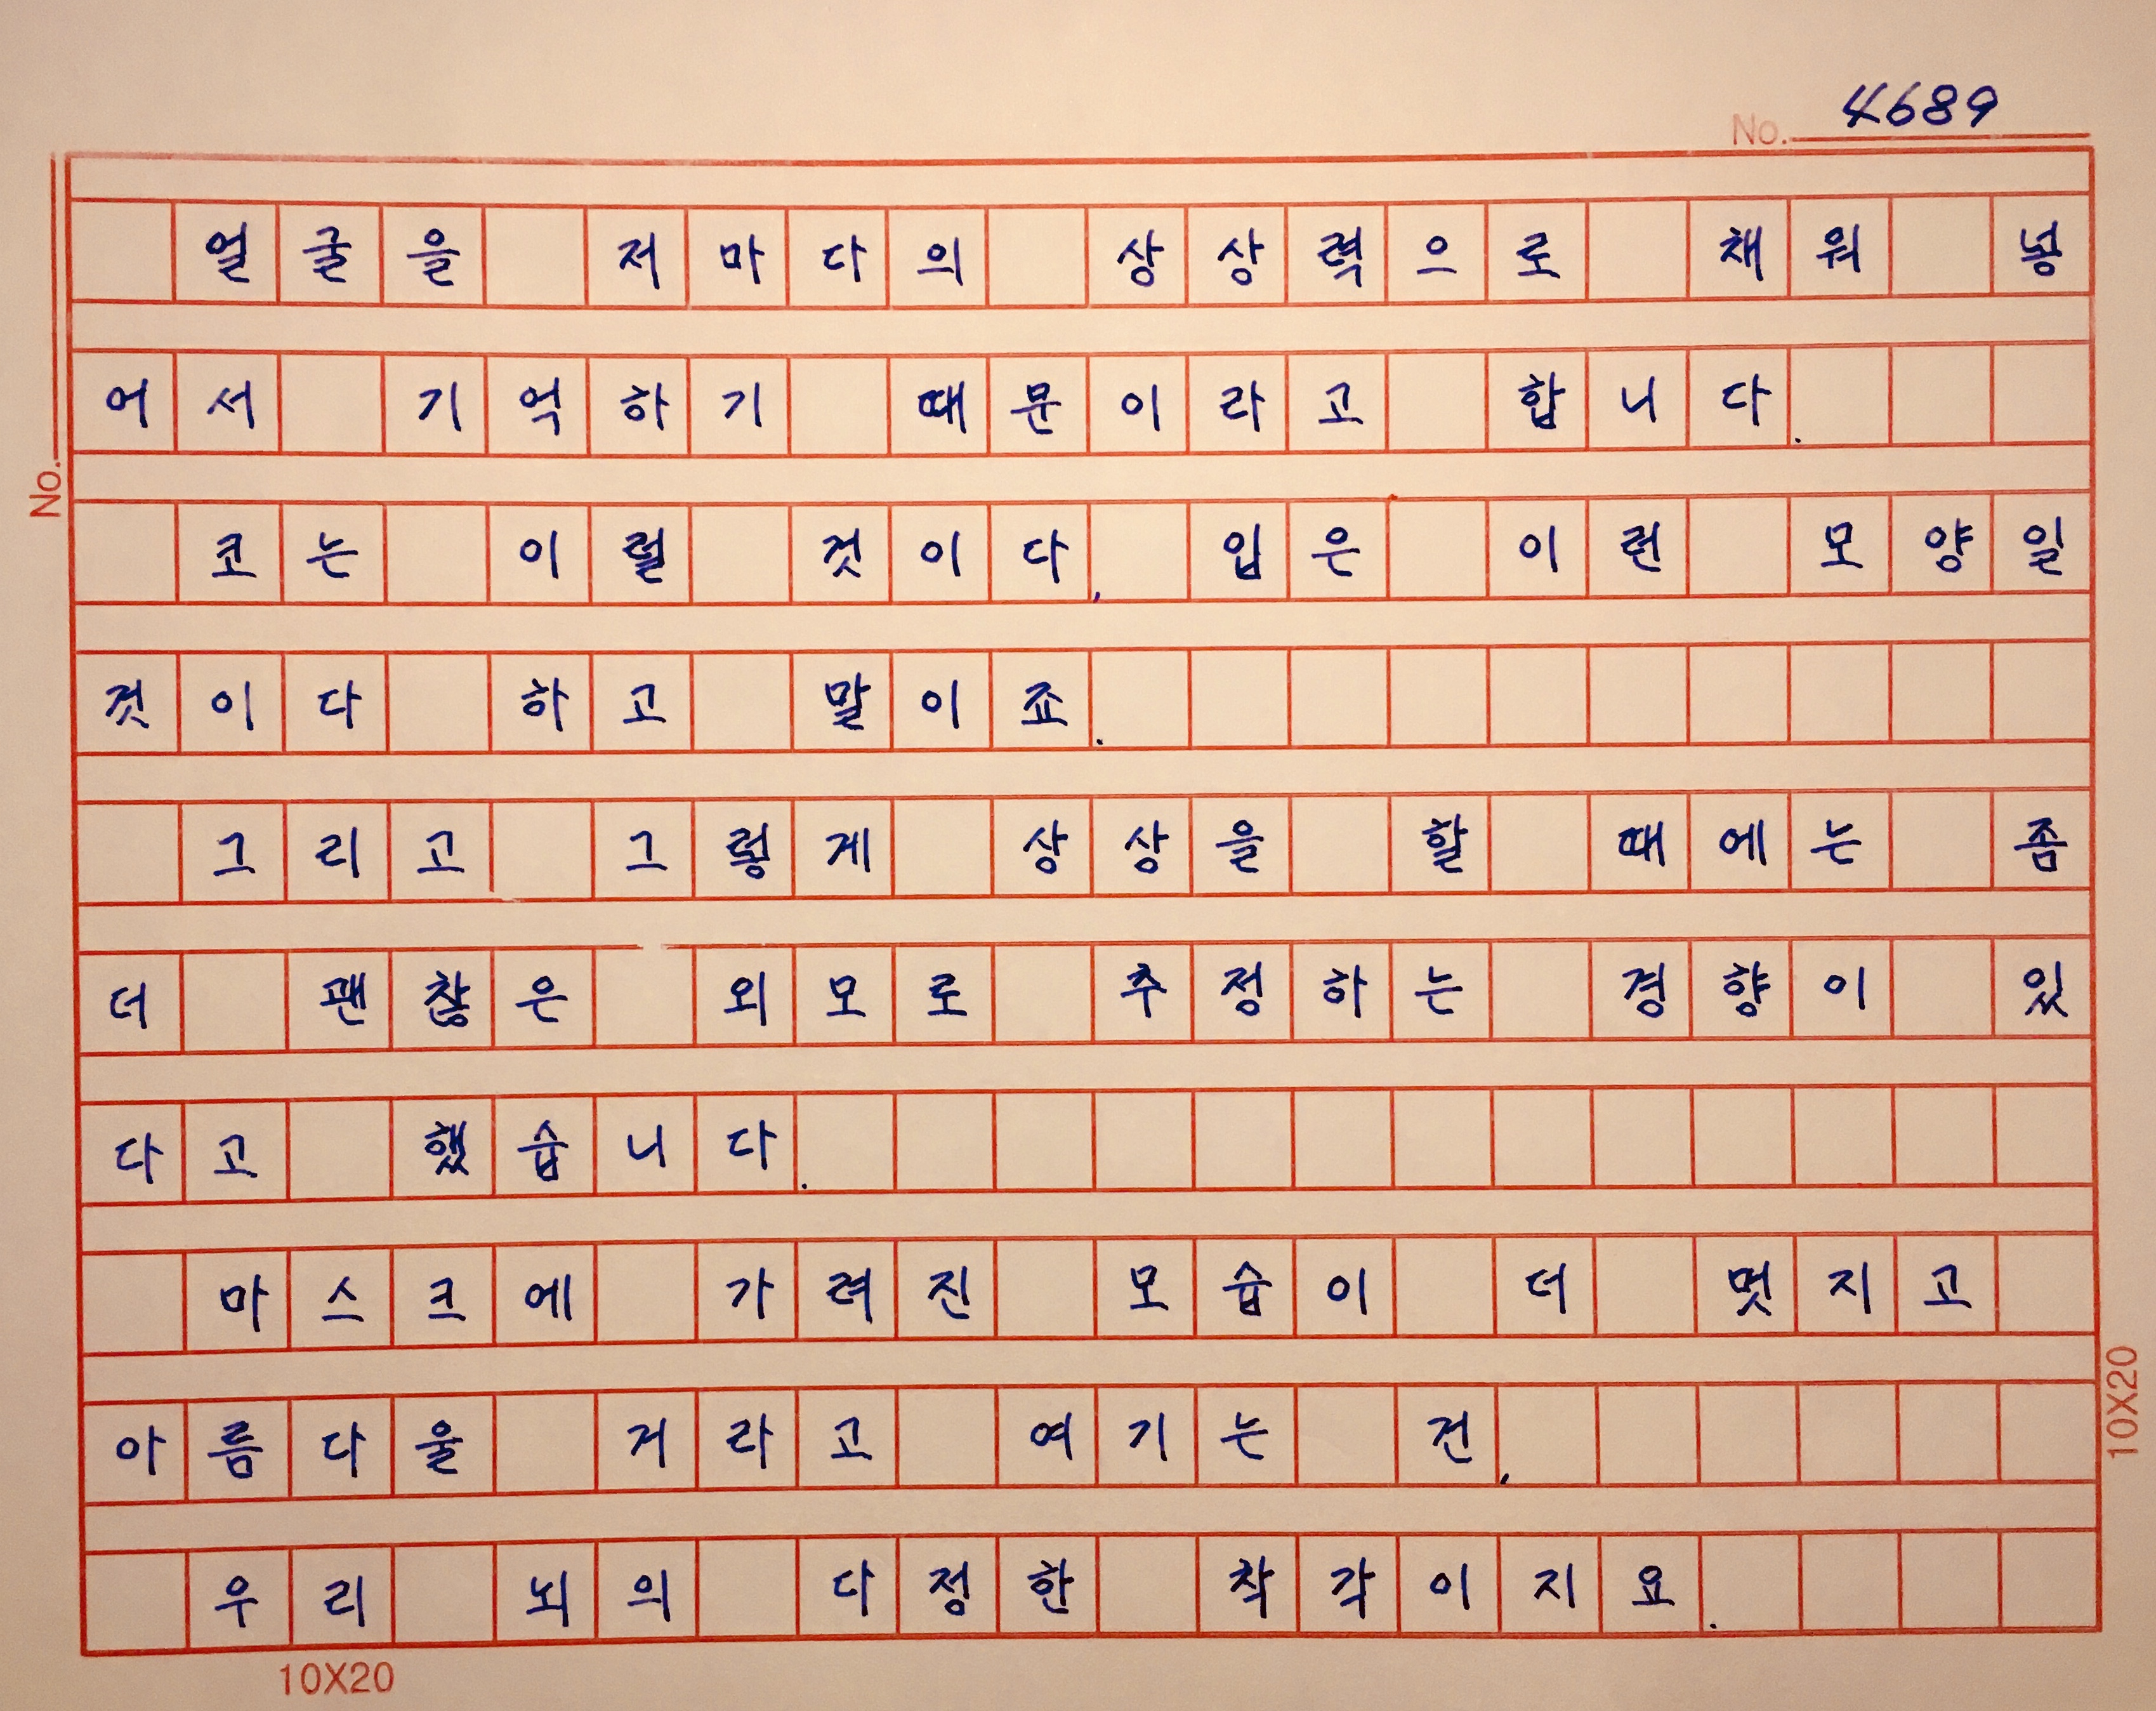 No. 4689
얼굴을 저마다의 상상력으로 채워 넣
어서 기억하기 때문이라고 합니다.
No.
코는 이럴 것이다, 입은 이런 모양일
것이다 하고 말이죠.
그리고 그렇게 상상을 할 때에는 좀
더 괜찮은 외모로 추정하는 경향이 있
다고 했습니다.
마스크에 가려진 모습이 더 멋지고
아름다울 거라고 여기는 건,
10X20
우리 뇌의 다정한 착각이지요.
10X20